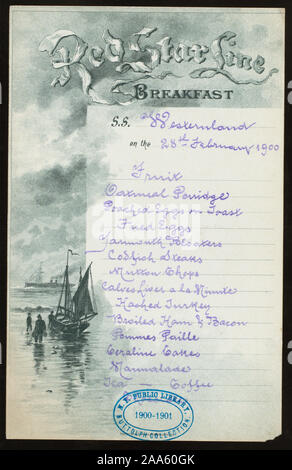 Red Star Line
BREAKFAST
S.S. Westernland
on the 28th February 1900
Fruit
Oatmeal Poridge
Poached Eggs on Toast
Fried Eggs
Yarmouth Bloaters
Codfish Steaks
Mutton Chops
Calves liver a la Minute
Hashed Turkey
Broiled Ham & Bacon
Pommes Paille
Ceraline Cakes
Marmalade
Tea — Coffee
N.Y. PUBLIC LIBRARY
1900-1901
BUTTOLPH COLLECTION
alamy
Image ID: 2AA60GK
www.alamy.com